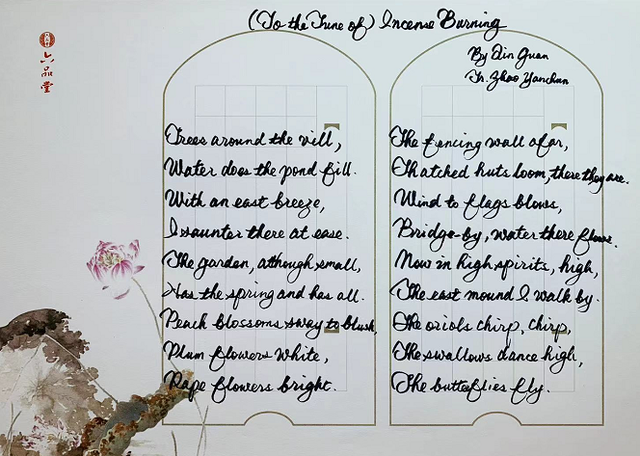 (To the Tune of) Incense Burning
By Qin Guan
Tr. Zhao Yanchun
六品堂
Trees around the vill,
Water does the pond fill.
With an east breeze,
I saunter there at ease.
The garden, although small,
Has the spring and has all.
Peach blossoms sway to blush,
Plum flowers white,
Rape flowers bright.
The fencing wall afar,
Thatched huts loom, there they are.
Wind to flags blows,
Bridge-by, water there flows.
Now in high spirits, high,
The east mound I walk by.
The oriols chirp, chirp,
The swallows dance high,
The butterflies fly.